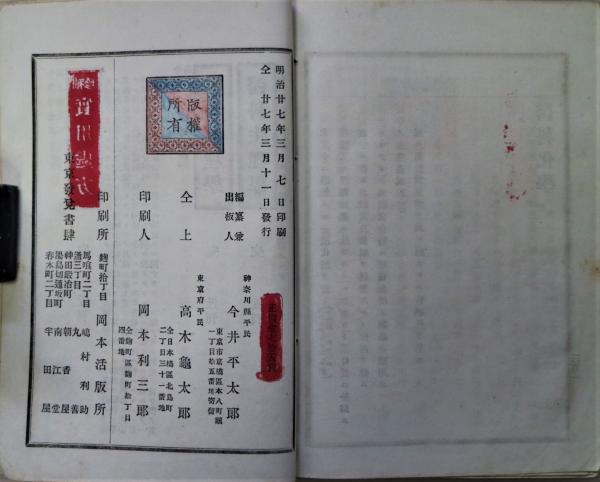 明治廿七年三月七日印刷
仝 廿七年三月十一日發行
版權
所有
編纂兼
出板人
神奈川縣平民
今井平太郎
東京市京橋區本八町堀
一丁目拾五番地寄留
仝上
東京府平民
高木龜太郎
仝日本橋區北島町
二丁目三十一番地
印刷人
岡本利三郎
仝麹町區麹町拾丁目
四番地
印刷所
麹町拾丁目
岡本活版所
東京發兌書肆
馬喰町二丁目 嶋村利助
通三丁目 丸善
神田鍛冶町 朝香屋
湯島切通坂町 南江堂
春木町二丁目 宇田屋
實用處方